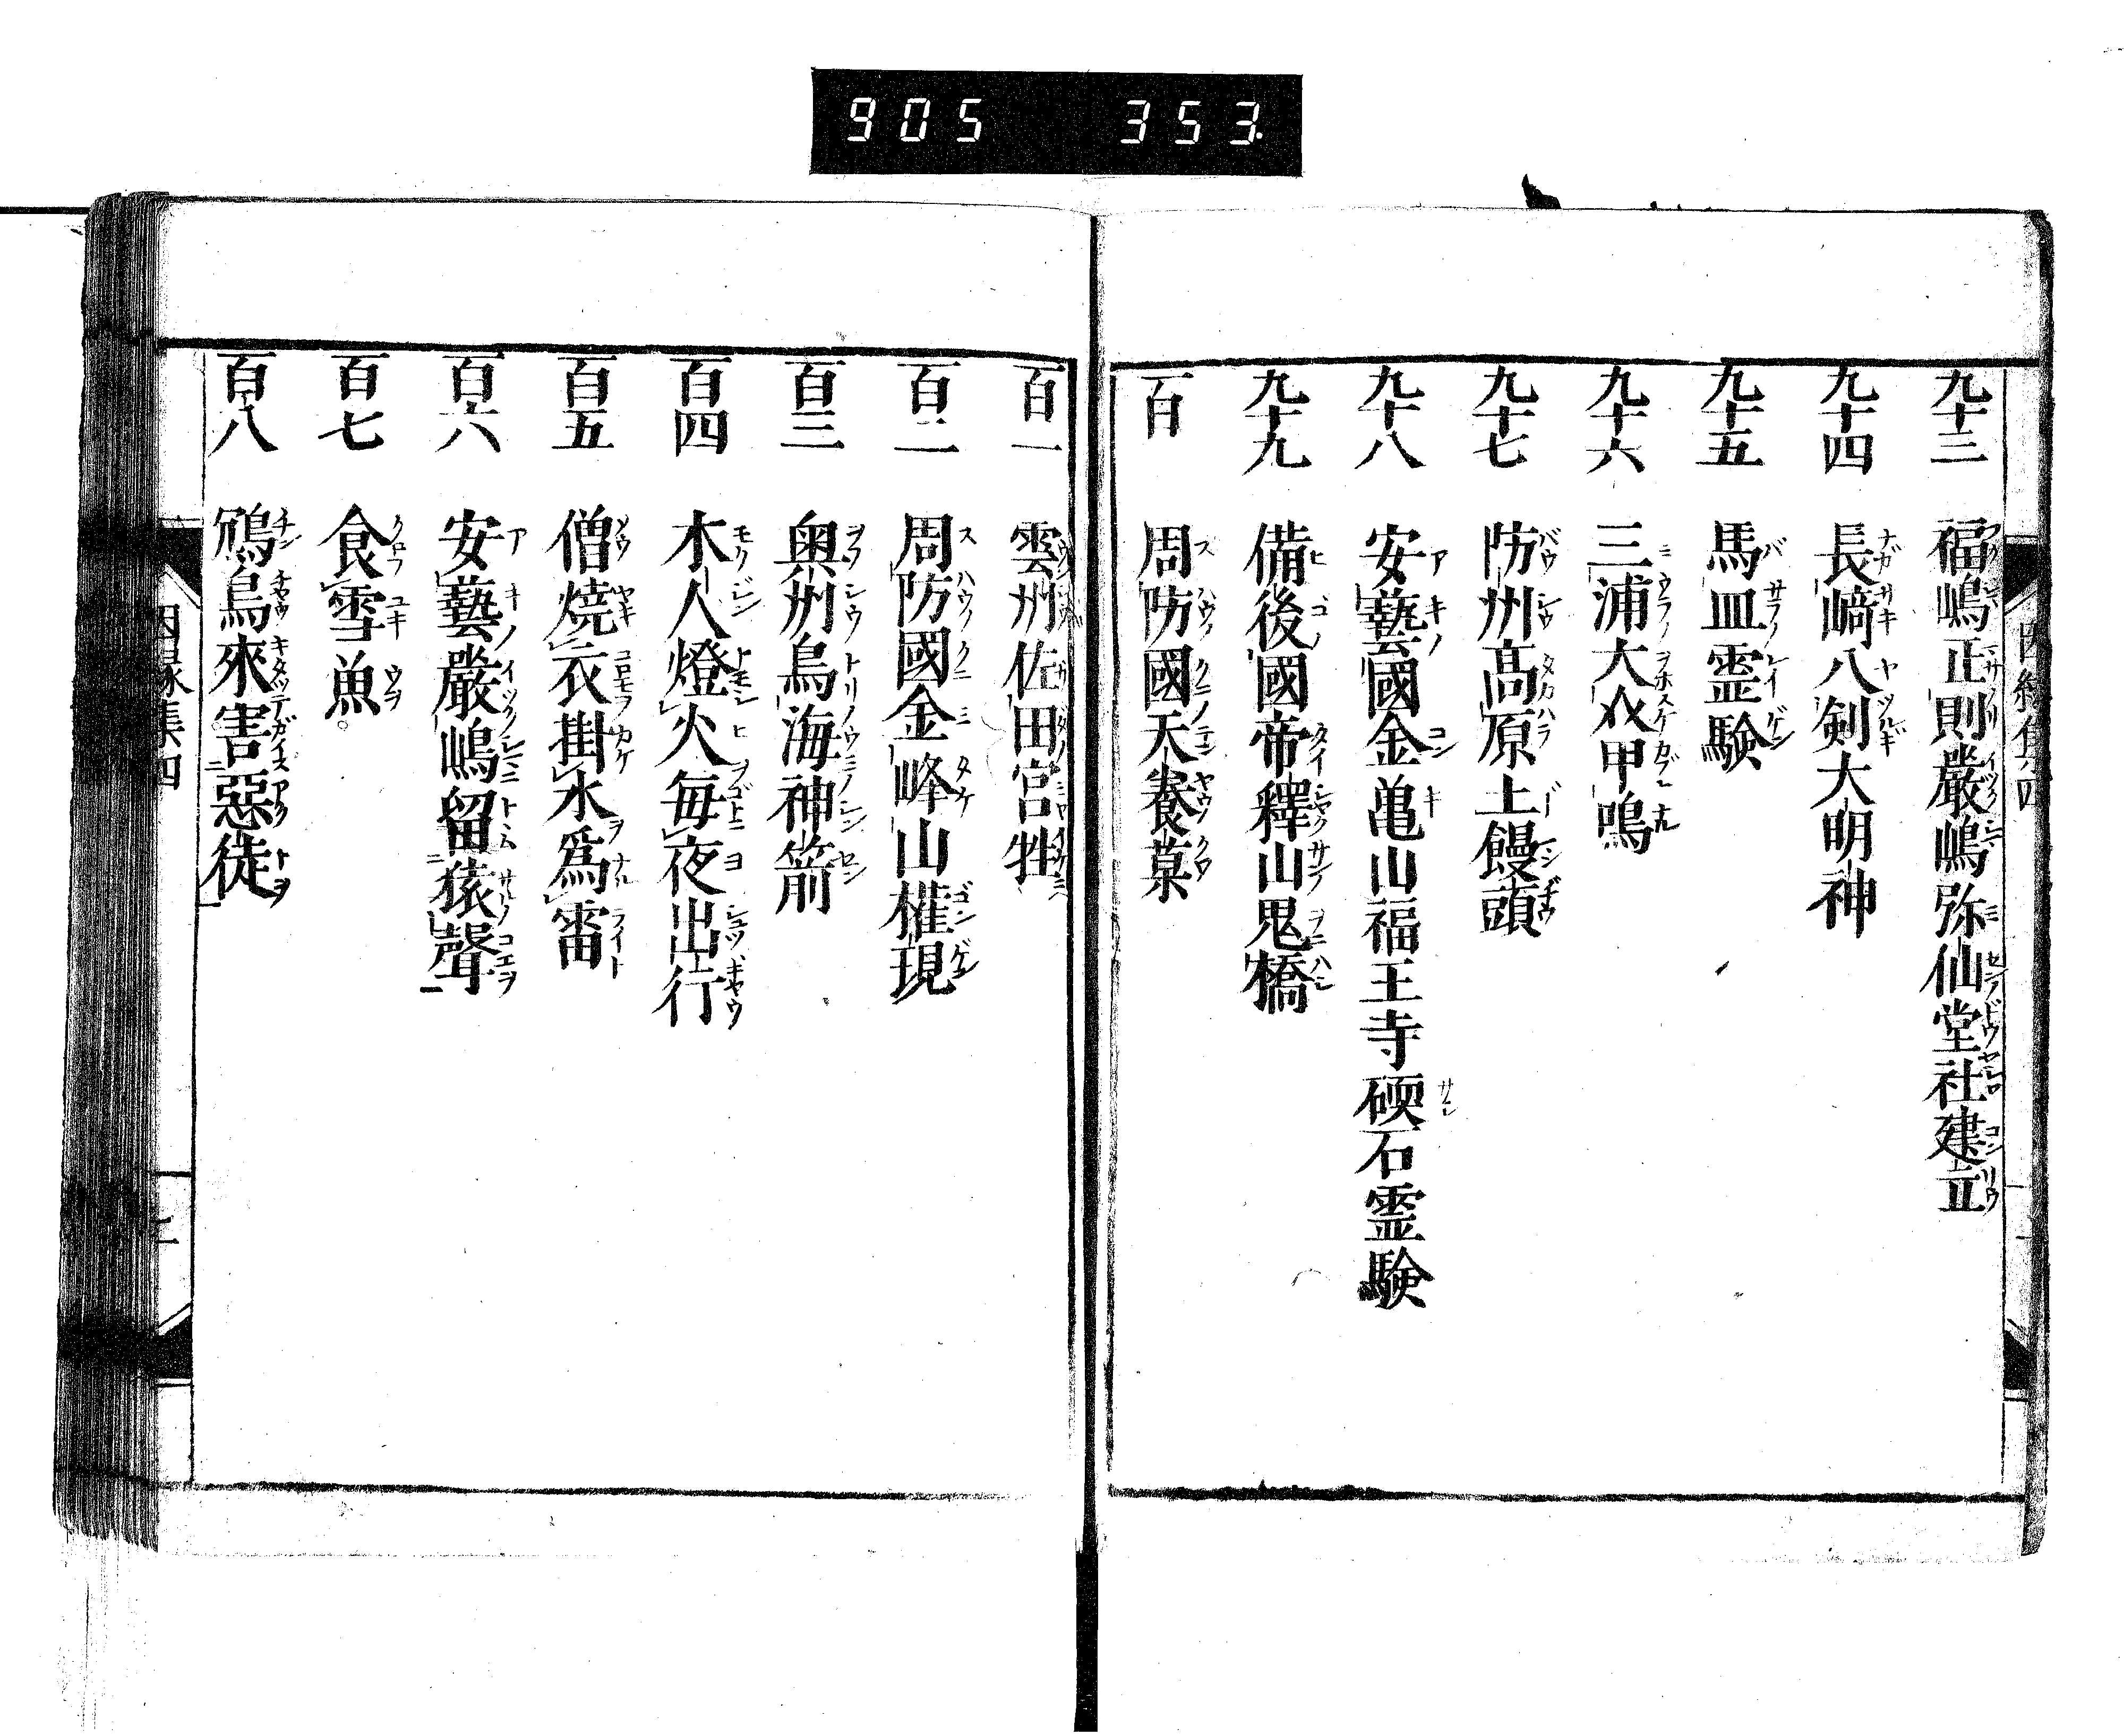 905 353.
九十三 福嶋正則嚴嶋弥仙堂社建立
九十四 長﨑八剣大明神
九十五 馬皿霊験
九十六 三浦大𠆢甲鳴
九十七 防州髙原土饅頭
九十八 安藝國金亀山福王寺碝石霊験
九十九 備後國帝釋山鬼橋
百 周防國天養菓
百一 雲州佐田宮牲
百二 周防國金峰山権現
百三 奥州烏海神箭
百四 木人燈火毎夜出行
百五 僧燒衣掛水為雷
百六 安藝嚴嶋留猿聲
百七 食雪魚
百八 鴆鳥來害惡徒
因縁集四